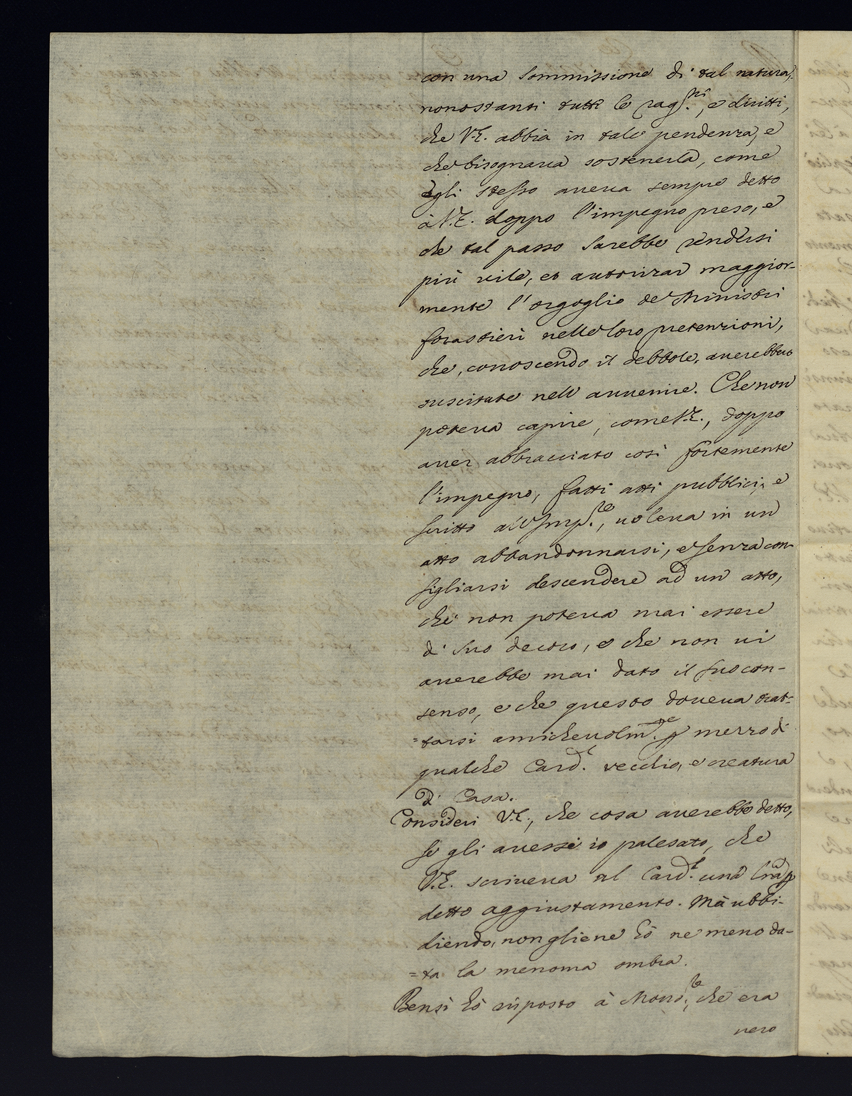 con una sommissione di tal natura,
nonostanti tutte le rag.ni, e diritti,
che V.E. abbia in tale pendenza, e
che bisognava sostenerla, come
egli stesso aveva sempre detto
à V.E. doppo l'impegno preso, e
che tal passo sarebbe rendersi
più vile, et autorizar maggior-
mente l'orgoglio de Ministri
forastieri nelle loro pretenzioni,
che, conoscendo il debbole, averebbero
suscitate nell'avvenire. Che non
poteva capire, come V.E., doppo
aver abbracciato così fortemente
l'impegno, fatti atti pubblici, e
scritto all'Imp.re, voleva in un
atto abbandonnarsi, e senza con-
sigliarsi descendere ad un atto,
che non poteva mai essere
di suo decoro, e che non vi
averebbe mai dato il suo con-
senso, e che questo doveva trat-
=tarsi amichevolm.te p mezzo di
qualche Card.l vecchio, e creatura
di Casa.
Consideri V.E., che cosa averebbe detto,
se gli avessi io palesato, che
V.E. scriveva al Card.l una lr̃a p
detto aggiustamento. Mà ubbi-
diendo, non gliene hò ne meno da-
=ta la menoma ombra.
Bensì hò risposto à Mons.re, che era
vero